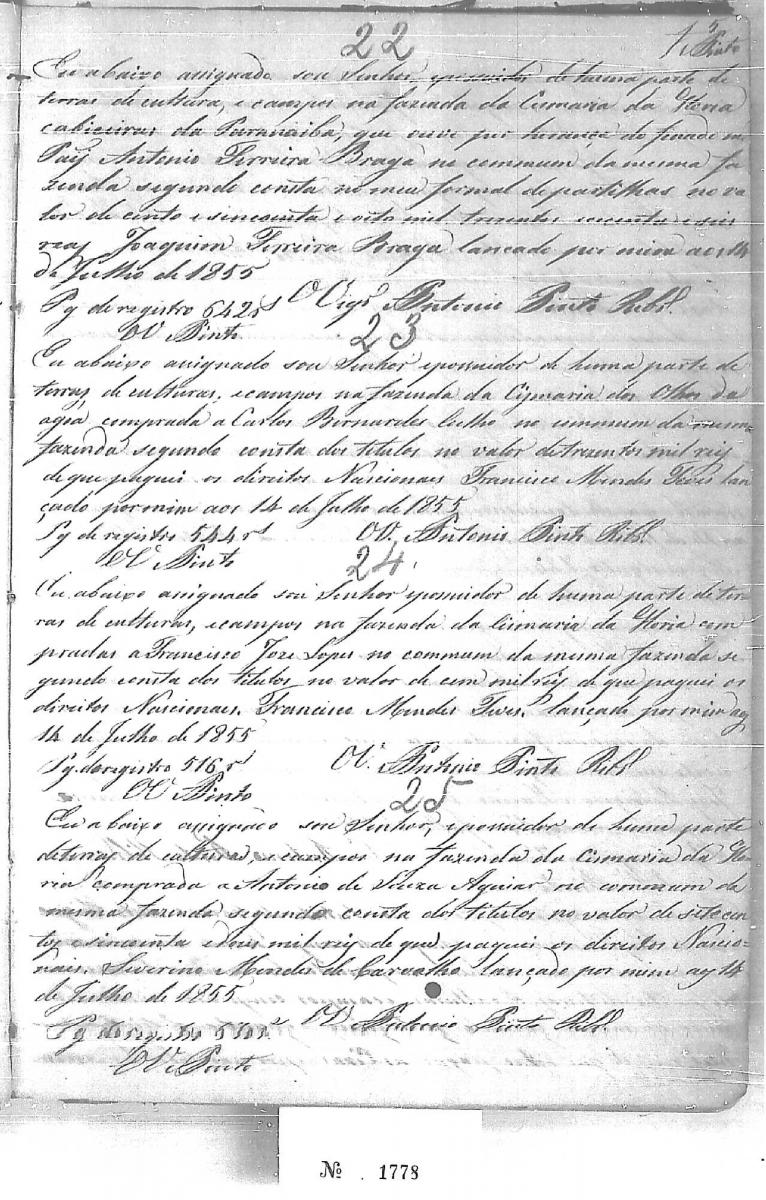 22
5
Pinto
Eu abaixo assignado sou Senhor, epossuidor de huma parte de
terras de cultura, e campos na fazenda da Cismaria da Gloria
cabiceiras da Paranaiba, que ouve por herança do finado meu
Pay Antonio Ferreira Braga no commum da mesma fa
zenda segundo consta no meu formal de partilhas no va
lor de cento e sincoenta e oito mil trezentos secenta e seis
reas Joaquim Ferreira Braga lancado por mim aos 14
de Julho de 1855
Pg de registro 642rs O Vigro Antonio Pinto Ribro
OV Pinto
23
Eu abaixo assignado sou Senhor epossuidor de huma parte de
terras de culturas, ecampos na fazenda da Cismaria dos Olhos da
agoa comprada a Carlos Bernardes Coelho no commum da mesma
fazenda segundo consta dos titulos no valor de trezentos mil reis
de que paguei os direitos Nascionaes Francisco Mendes Teves lan
çado por mim aos 14 de Julho de 1855
Pg de registro 544rs OV. Antonio Pinto Ribro
OV Pinto
24
Eu abaixo assignado sou Senhor epossuidor de huma parte de ter
ras de culturas, ecampos na fazenda da Cismaria da Gloria com
pradas a Francisco Joze Lopes no commum da mesma fazenda se
gundo consta dos titulos no valor de cem mil reis de que paguei os
direitos Nascionaes. Francisco Mendes Teves. lançado por mim aos
14 de Julho de 1855
Pg. de registro 516rs OV. Antonio Pinto Ribro
OV Pinto
25
Eu abaixo assignado sou Senhor, epossuidor de huma parte
de terras de culturas, e campos na fazenda da Cismaria da Glo
ria comprada a Antonio de Souza Aguiar no commum da
mesma fazenda segundo consta dos titulos no valor de sete cen
tos esincoenta e dous mil reis de que paguei os direitos Nascio-
nais. Severino Mendes de Carvalho lançado por mim aos 14
de Julho de 1855
Pg de registro OV Antonio Pinto Ribro
OV Pinto
No. 1778